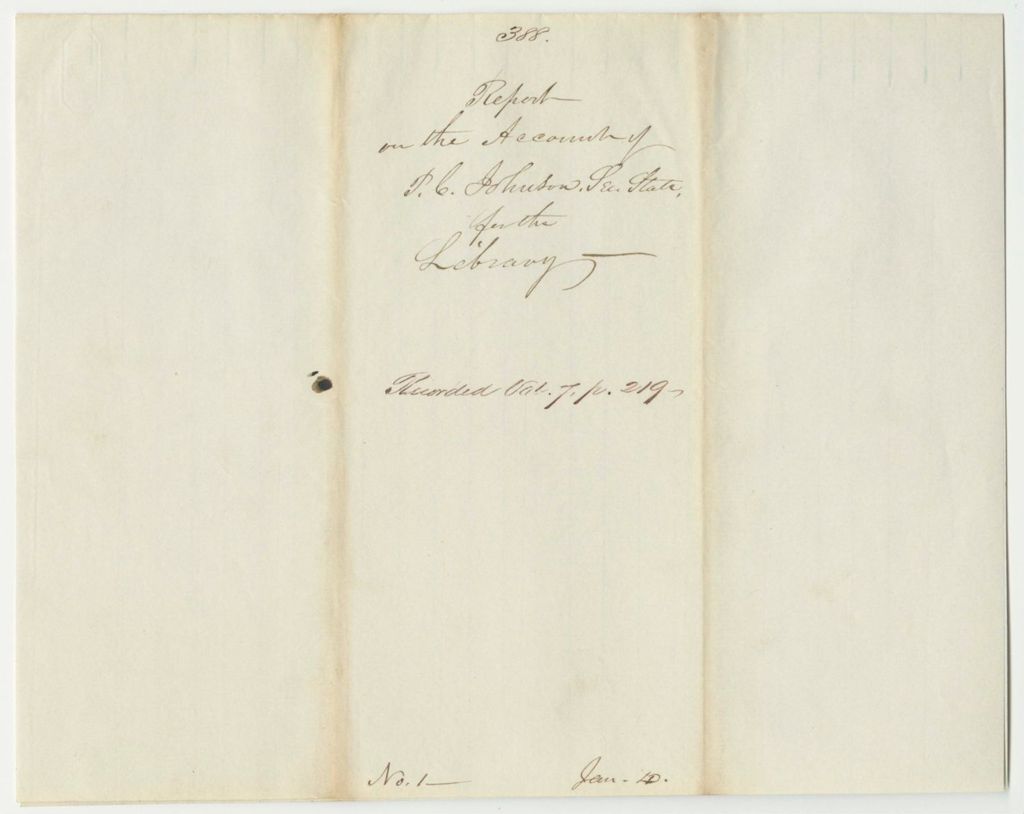 388.
Report
on the Account of
P. C. Johnson, Sec. State,
for the
Library
Recorded Vol. 7, p. 219
No. 1
Jan. 4.